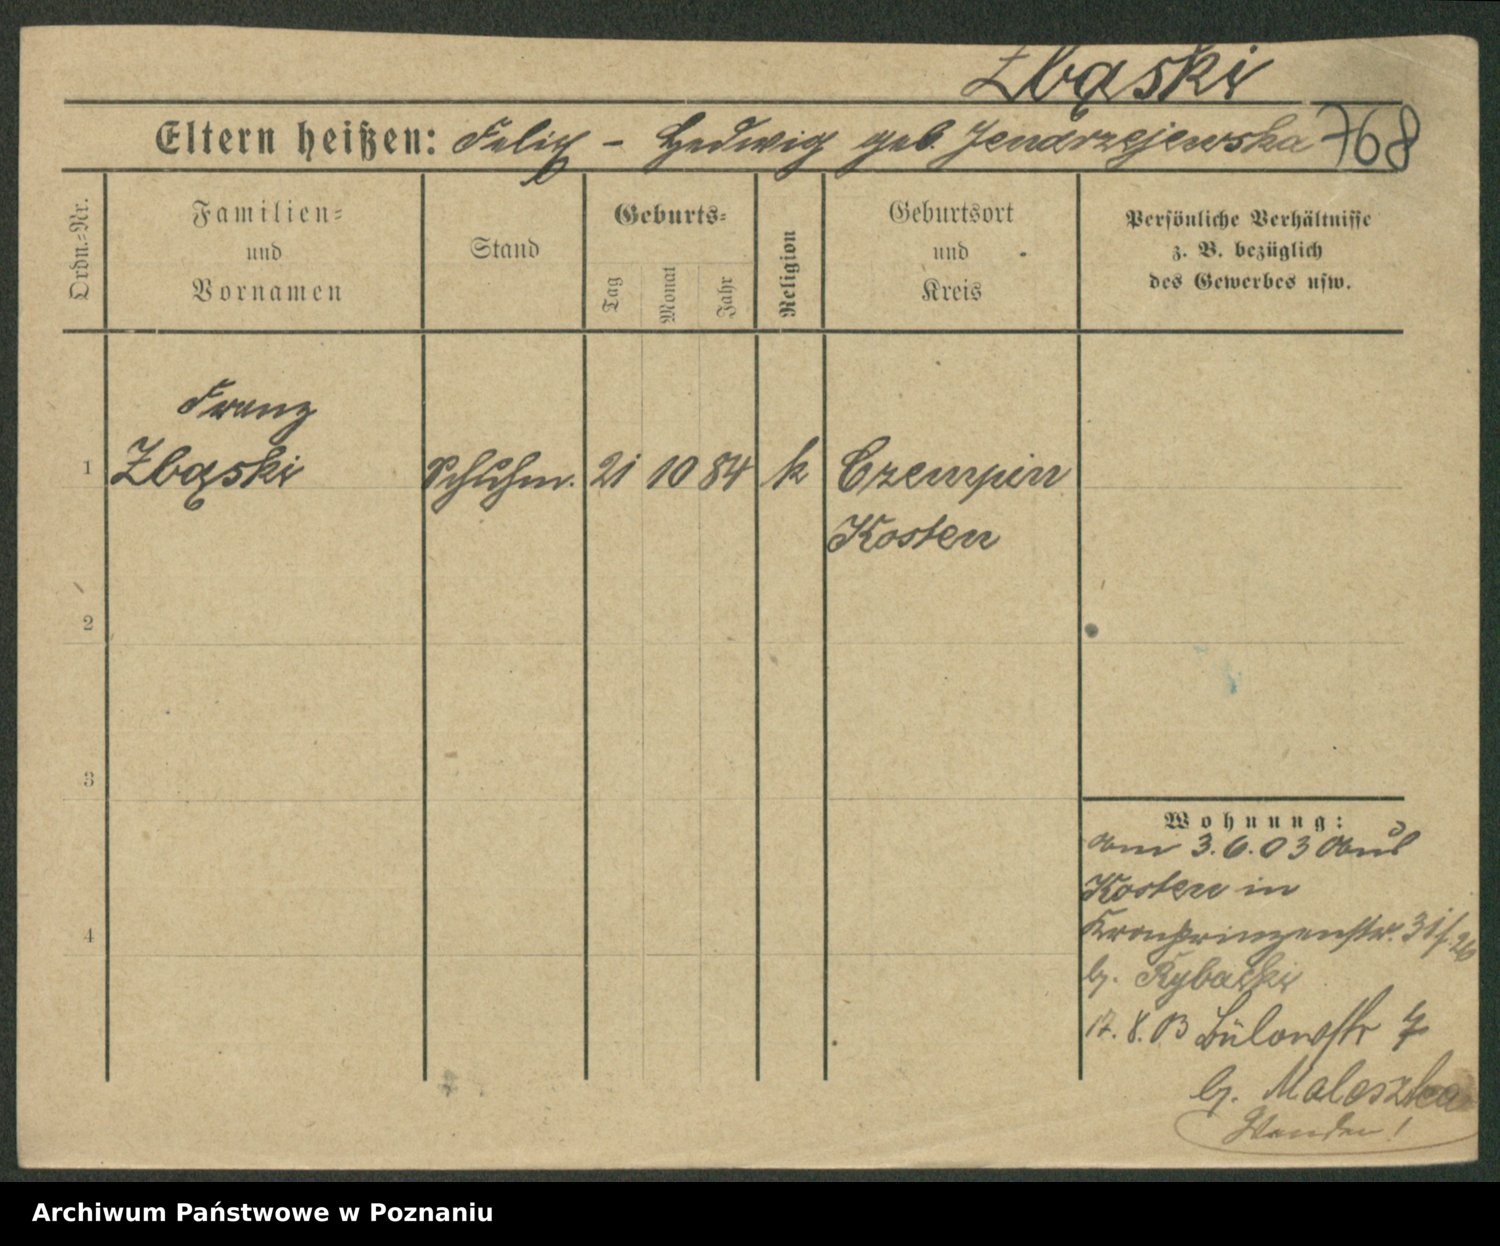 Zbąski
Eltern heißen: Felix - Hedwig geb. Jendrzejewska 768
Ordn.=Nr.
Familien=
und
Vornamen
Stand
Geburts=
Tag
Monat
Jahr
Religion
Geburtsort
und
Kreis
Persönliche Verhältnisse
z. B. bezüglich
des Gewerbes usw.
Franz
1 Zbąski Schuhm. 21 10 84 k Czempin
Kosten
2
3
4
Wohnung:
Am 3.6.03 aus
Kosten in
Kronprinzenstr. 31/
b. Rybacki
17.8.03 Bülowstr 4
b. Maleszka
Wenden!
Archiwum Państwowe w Poznaniu